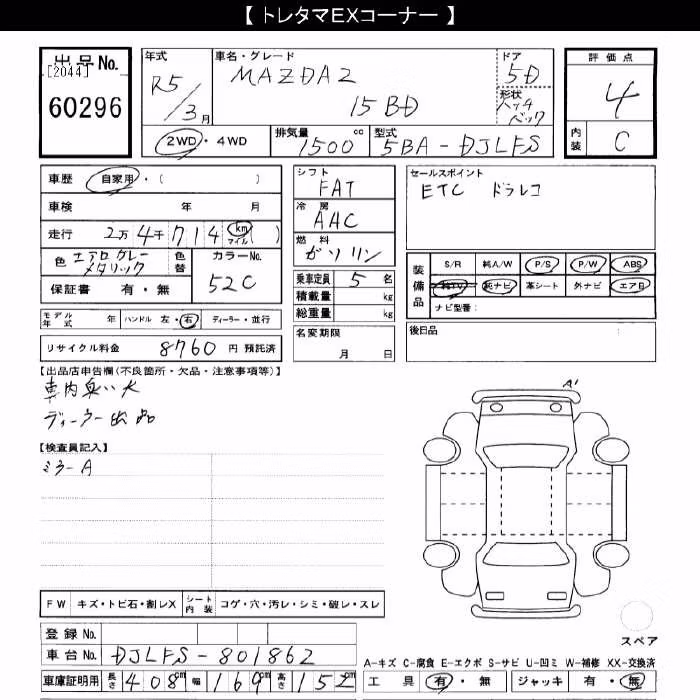 【 トレタマEXコーナー 】
出品No. [2044] 60296
年式 R5/3月
車名・グレード MAZDA2 15BD
ドア 5D
形状 ハッチバック
2WD・4WD
排気量 1500cc
型式 5BA-DJLFS
評価点 4
内装 C
車歴 自家用・( )
車検 年 月
走行 2万4千714 km マイル ( )
色 エアログレーメタリック
色替
カラーNo. 52C
保証書 有・無
モデル年式 年
ハンドル 左・右
ディーラー・並行
リサイクル料金 8760 円 預託済
シフト FAT
冷房 AAC
燃料 ガソリン
乗車定員 5 名
積載量 kg
総重量 kg
名変期限 月 日
セールスポイント
ETC ドラレコ
装備品
S/R 純A/W P/S P/W ABS
純TV 純ナビ 革シート 外ナビ エアB
ナビ型番:
後日品
【出品店申告欄(不良箇所・欠品・注意事項等)】
車内臭い大
ディーラー出品
【検査員記入】
ミラーA
A1
FW キズ・トビ石・割レX
シート内装 コゲ・穴・汚レ・シミ・破レ・スレ
登録No.
車台No. DJLFS-801862
車庫証明用 長さ 408cm 幅 169cm 高さ 152cm
スペア
A-キズ C-腐食 E-エクボ S-サビ U-凹ミ W-補修 XX-交換済
工具 有・無 ジャッキ 有・無